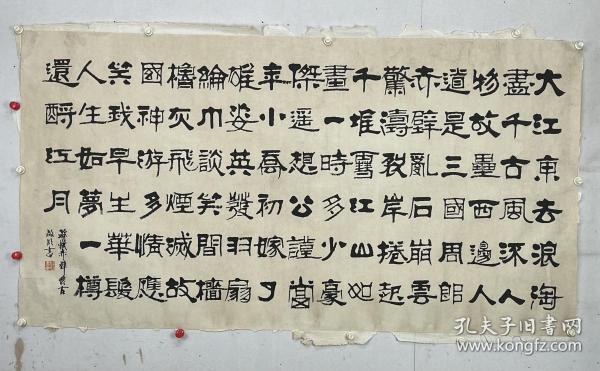 大江東去浪淘
盡千古風流人
物故壘西邊人
道是三國周郎
赤壁亂石崩雲
驚濤裂岸捲起
千堆雪江山如
畫一時多少豪
傑遥想公瑾當
年小喬初嫁了
雄姿英發羽扇
綸巾談笑間檣
櫓灰飛煙滅故
國神游多情應
笑我早生華髮
人生如夢一樽
還酹江月
孔夫子旧書网
www.kongfz.com